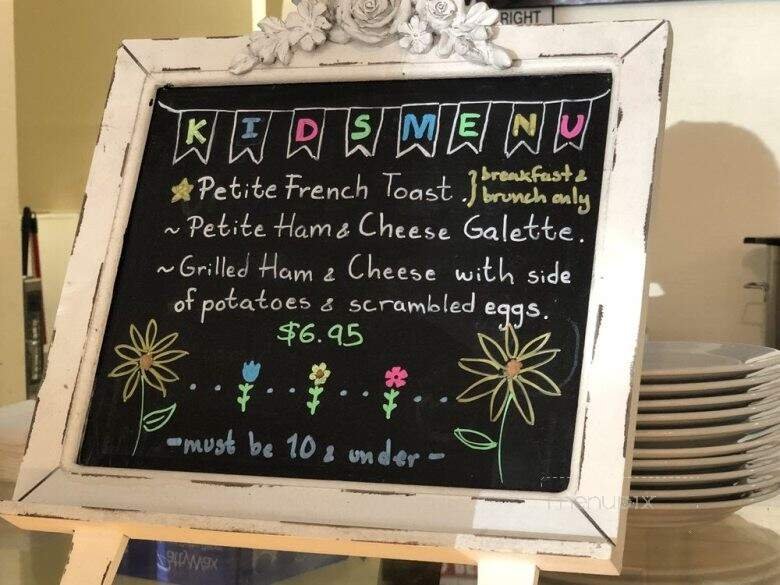 RIGHT
KIDS MENU
Petite French Toast. } breakfast &
brunch only
~ Petite Ham & Cheese Galette.
~ Grilled Ham & Cheese with side
of potatoes & scrambled eggs.
$6.95
-must be 10 & under-
menupix